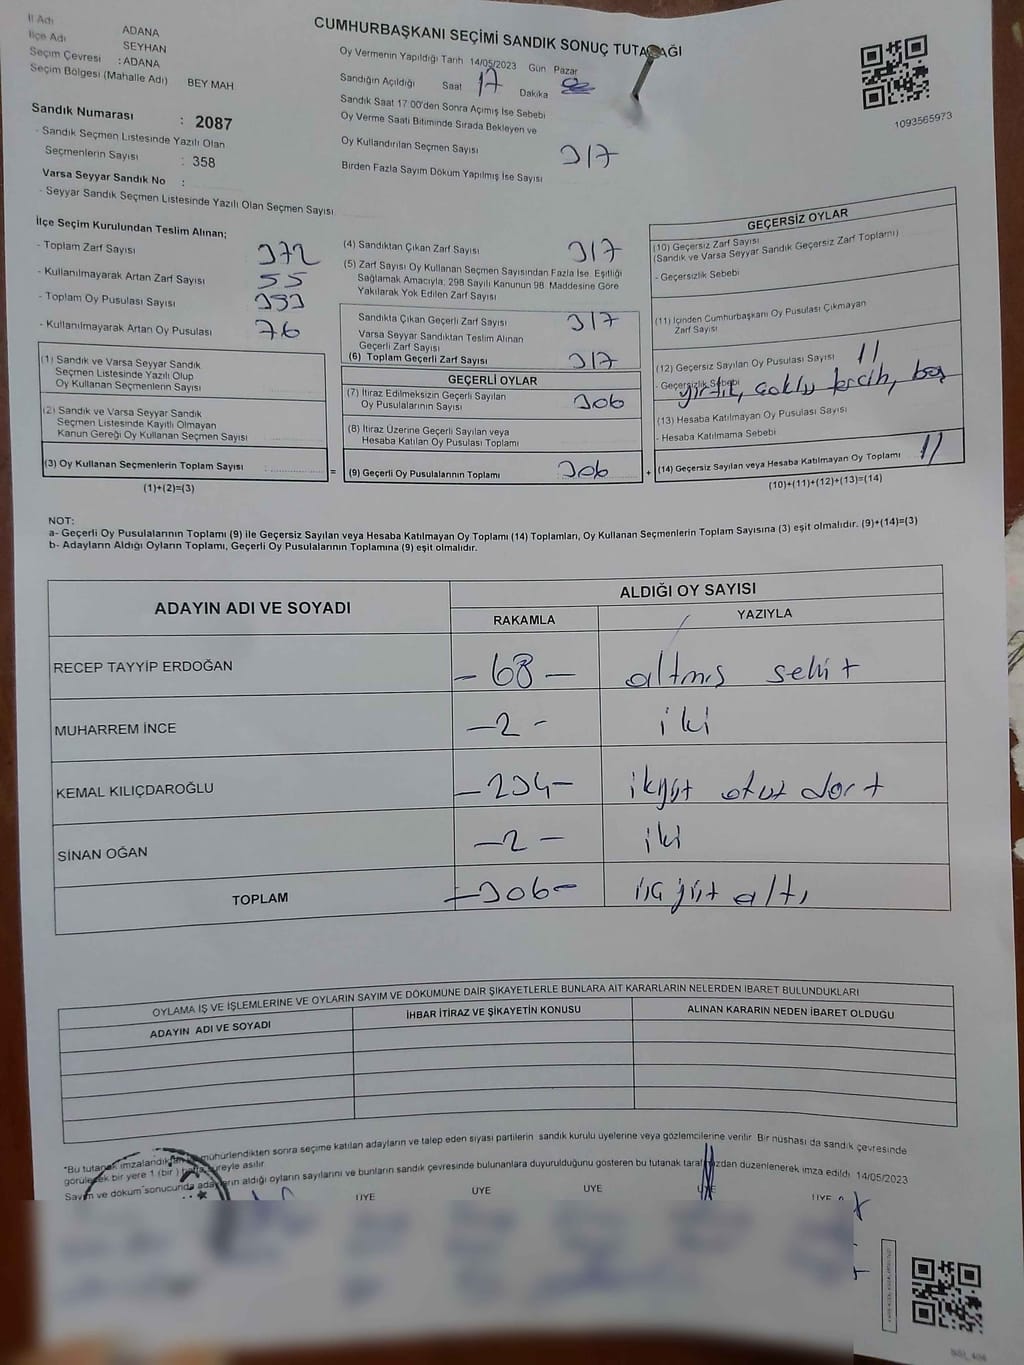 CUMHURBAŞKANI SEÇİMİ SANDIK SONUÇ TUTANAĞI
İl Adı ADANA
İlçe Adı SEYHAN
Seçim Çevresi : ADANA
Seçim Bölgesi (Mahalle Adı) BEY MAH
Oy Vermenin Yapıldığı Tarih 14/05/2023 Gün Pazar
Sandığın Açıldığı Saat 17 Dakika
Sandık Saat 17:00'den Sonra Açımış İse Sebebi
Oy Verme Saati Bitiminde Sırada Bekleyen ve
Oy Kullandırılan Seçmen Sayısı 317
Birden Fazla Sayım Döküm Yapılmış İse Sayısı
1093565973
Sandık Numarası : 2087
- Sandık Seçmen Listesinde Yazılı Olan
Seçmenlerin Sayısı : 358
Varsa Seyyar Sandık No :
- Seyyar Sandık Seçmen Listesinde Yazılı Olan Seçmen Sayısı
İlçe Seçim Kurulundan Teslim Alınan;
- Toplam Zarf Sayısı 372
- Kullanılmayarak Artan Zarf Sayısı 55
- Toplam Oy Pusulası Sayısı 393
- Kullanılmayarak Artan Oy Pusulası 76
(1) Sandık ve Varsa Seyyar Sandık
Seçmen Listesinde Yazılı Olup
Oy Kullanan Seçmenlerin Sayısı
(2) Sandık ve Varsa Seyyar Sandık
Seçmen Listesinde Kayıtlı Olmayan
Kanun Gereği Oy Kullanan Seçmen Sayısı
(3) Oy Kullanan Seçmenlerin Toplam Sayısı : =
(1)+(2)=(3)
(4) Sandıktan Çıkan Zarf Sayısı 317
(5) Zarf Sayısı Oy Kullanan Seçmen Sayısından Fazla İse, Eşitliği
Sağlamak Amacıyla; 298 Sayılı Kanunun 98. Maddesine Göre
Yakılarak Yok Edilen Zarf Sayısı
Sandıkta Çıkan Geçerli Zarf Sayısı 317
Varsa Seyyar Sandıktan Teslim Alınan
Geçerli Zarf Sayısı
(6) Toplam Geçerli Zarf Sayısı 317
GEÇERLİ OYLAR
(7) İtiraz Edilmeksizin Geçerli Sayılan
Oy Pusulalarının Sayısı 306
(8) İtiraz Üzerine Geçerli Sayılan veya
Hesaba Katılan Oy Pusulası Toplamı
(9) Geçerli Oy Pusulalarının Toplamı 306 +
GEÇERSİZ OYLAR
(10) Geçersiz Zarf Sayısı
(Sandık ve Varsa Seyyar Sandık Geçersiz Zarf Toplamı)
- Geçersizlik Sebebi
(11) İçinden Cumhurbaşkanı Oy Pusulası Çıkmayan
Zarf Sayısı
(12) Geçersiz Sayılan Oy Pusulası Sayısı 11
- Geçersizlik Sebebi yırtık, çoklu tercih, boş
(13) Hesaba Katılmayan Oy Pusulası Sayısı
- Hesaba Katılmama Sebebi
(14) Geçersiz Sayılan veya Hesaba Katılmayan Oy Toplamı 11
(10)+(11)+(12)+(13)=(14)
NOT:
a- Geçerli Oy Pusulalarının Toplamı (9) ile Geçersiz Sayılan veya Hesaba Katılmayan Oy Toplamı (14) Toplamları, Oy Kullanan Seçmenlerin Toplam Sayısına (3) eşit olmalıdır. (9)+(14)=(3)
b- Adayların Aldığı Oyların Toplamı, Geçerli Oy Pusulalarının Toplamına (9) eşit olmalıdır.
ADAYIN ADI VE SOYADI ALDIĞI OY SAYISI
RAKAMLA YAZIYLA
RECEP TAYYİP ERDOĞAN - 68 - altmış sekiz
MUHARREM İNCE - 2 - iki
KEMAL KILIÇDAROĞLU - 234 - ikiyüz otuz dört
SİNAN OĞAN - 2 - iki
TOPLAM - 306 - üç yüz altı
OYLAMA İŞ VE İŞLEMLERİNE VE OYLARIN SAYIM VE DÖKÜMÜNE DAİR ŞİKAYETLERLE BUNLARA AİT KARARLARIN NELERDEN İBARET BULUNDUKLARI
ADAYIN ADI VE SOYADI İHBAR İTİRAZ VE ŞİKAYETİN KONUSU ALINAN KARARIN NEDEN İBARET OLDUĞU
*Bu tutanak imzalandıktan ve mühürlendikten sonra seçime katılan adayların ve talep eden siyasi partilerin sandık kurulu üyelerine veya gözlemcilerine verilir. Bir nüshası da sandık çevresinde
görülecek bir yere 1 (bir) hafta süreyle asılır.
Sayım ve döküm sonucunda adayların aldığı oyların sayılarını ve bunların sandık çevresinde bulunanlara duyurulduğunu gösteren bu tutanak tarafımızdan düzenlenerek imza edildi. 14/05/2023
ÜYE ÜYE ÜYE ÜYE ÜYE